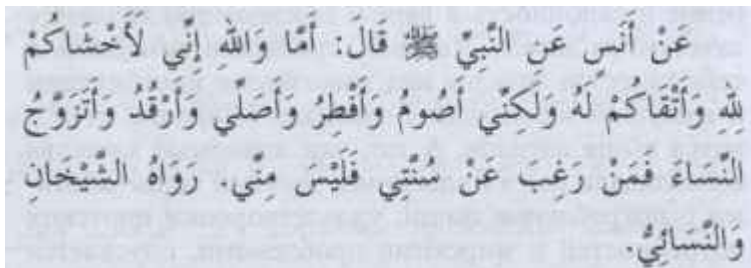 عَنْ أَنَسٍ عَنِ النَّبِيِّ ﷺ قَالَ: أَمَّا وَاللهِ إِنِّي لَأَخْشَاكُمْ
لِلهِ وَأَتْقَاكُمْ لَهُ وَلَكِنِّي أَصُومُ وَأُفْطِرُ وَأُصَلِّي وَأَرْقُدُ وَأَتَزَوَّجُ
النِّسَاءَ فَمَنْ رَغِبَ عَنْ سُنَّتِي فَلَيْسَ مِنِّي. رَوَاهُ الشَّيْخَانِ
وَالنَّسَائِيُّ.